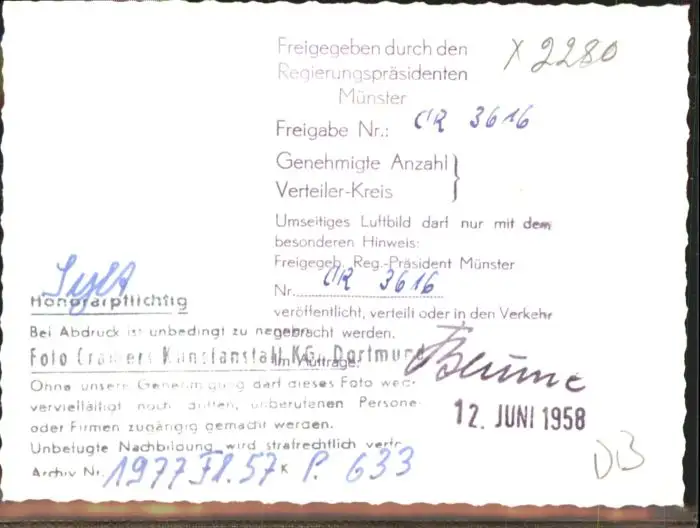 Freigegeben durch den
Regierungspräsidenten
Münster
X 2280
Freigabe Nr.: CR 3616
Genehmigte Anzahl }
Verteiler-Kreis
Umseitiges Luftbild darf nur mit dem
besonderen Hinweis:
Freigegeb. Reg.-Präsident Münster
Nr. CR 3616
veröffentlicht, verteilt oder in den Verkehr
gebracht werden.
Im Auftrage:
12. JUNI 1958
Sylt
Honorarpflichtig
Bei Abdruck ist unbedingt zu
Foto Cramers Kunstanstalt KG., Dortmund
Ohne unsere Genehmigung darf dieses Foto
vervielfältigt noch dritten, unberufenen Persone
oder Firmen zugängig gemacht werden.
Unbefugte Nachbildung wird strafrechtlich verfo
Archiv Nr. 1977 Fl. 57 K P. 633
DB